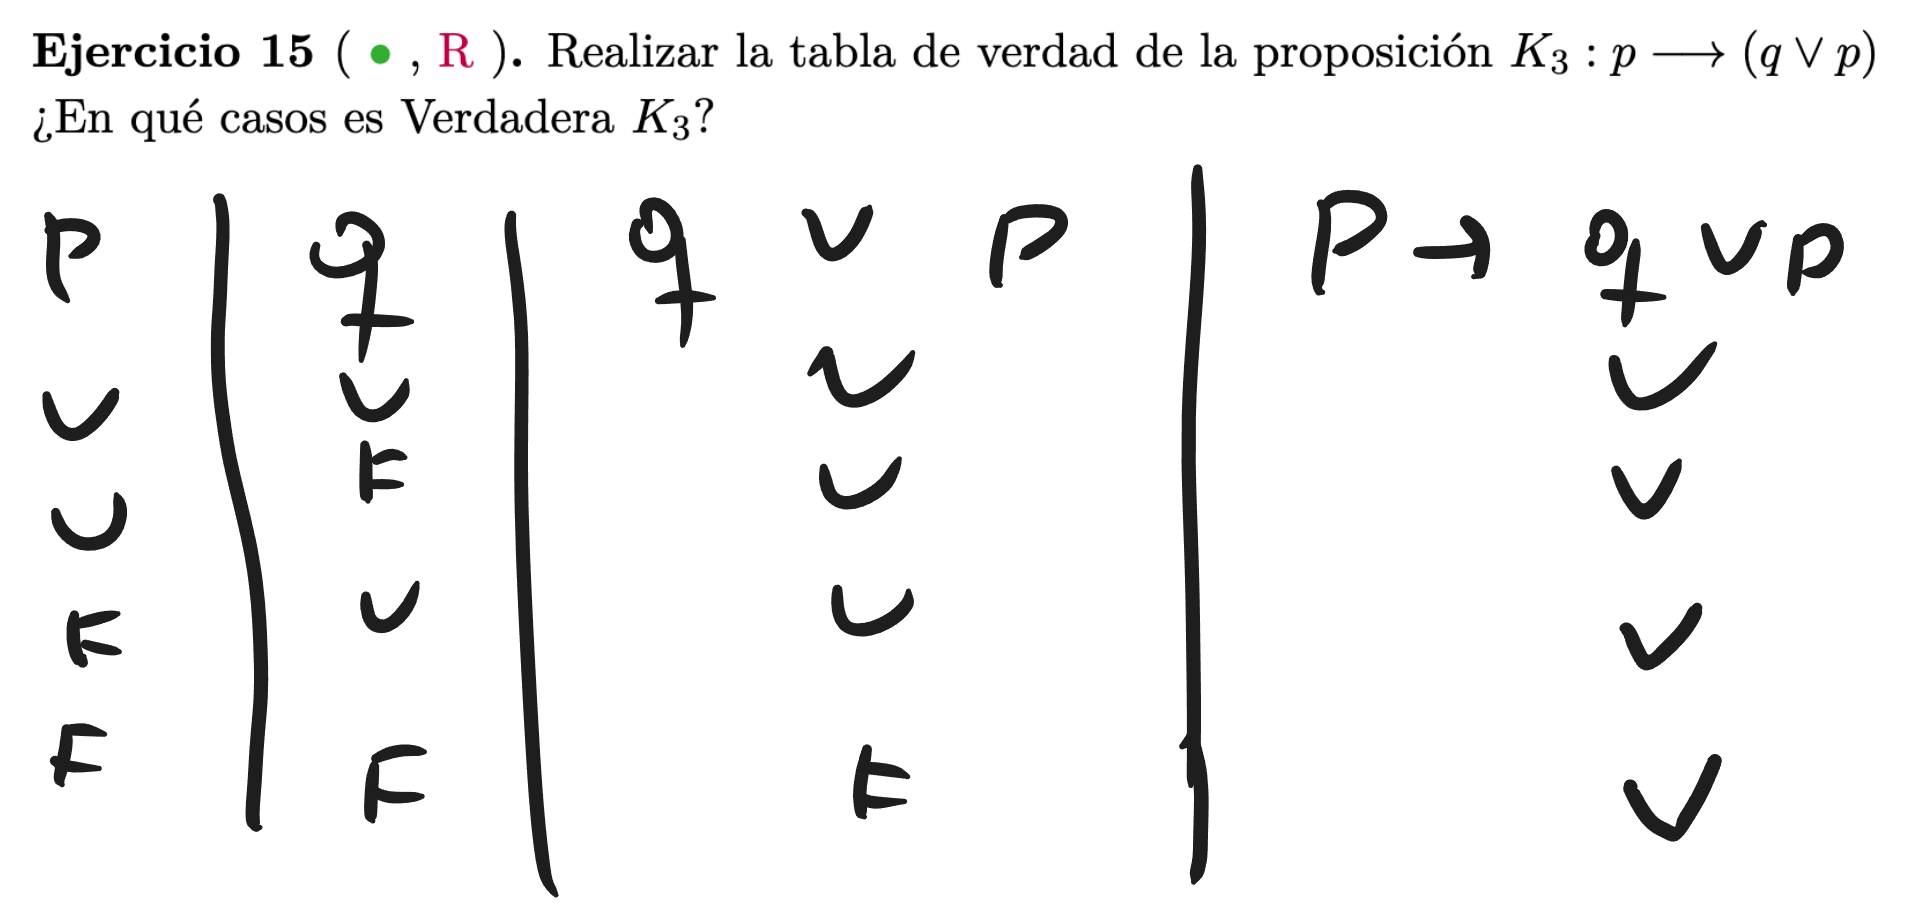 Ejercicio 15 ( • , R ). Realizar la tabla de verdad de la proposición K₃ : p ⟶ (q ∨ p)
¿En qué casos es Verdadera K₃?
p | q | q ∨ p | p → q ∨ p
V | V | V | V
V | F | V | V
F | V | V | V
F | F | F | V